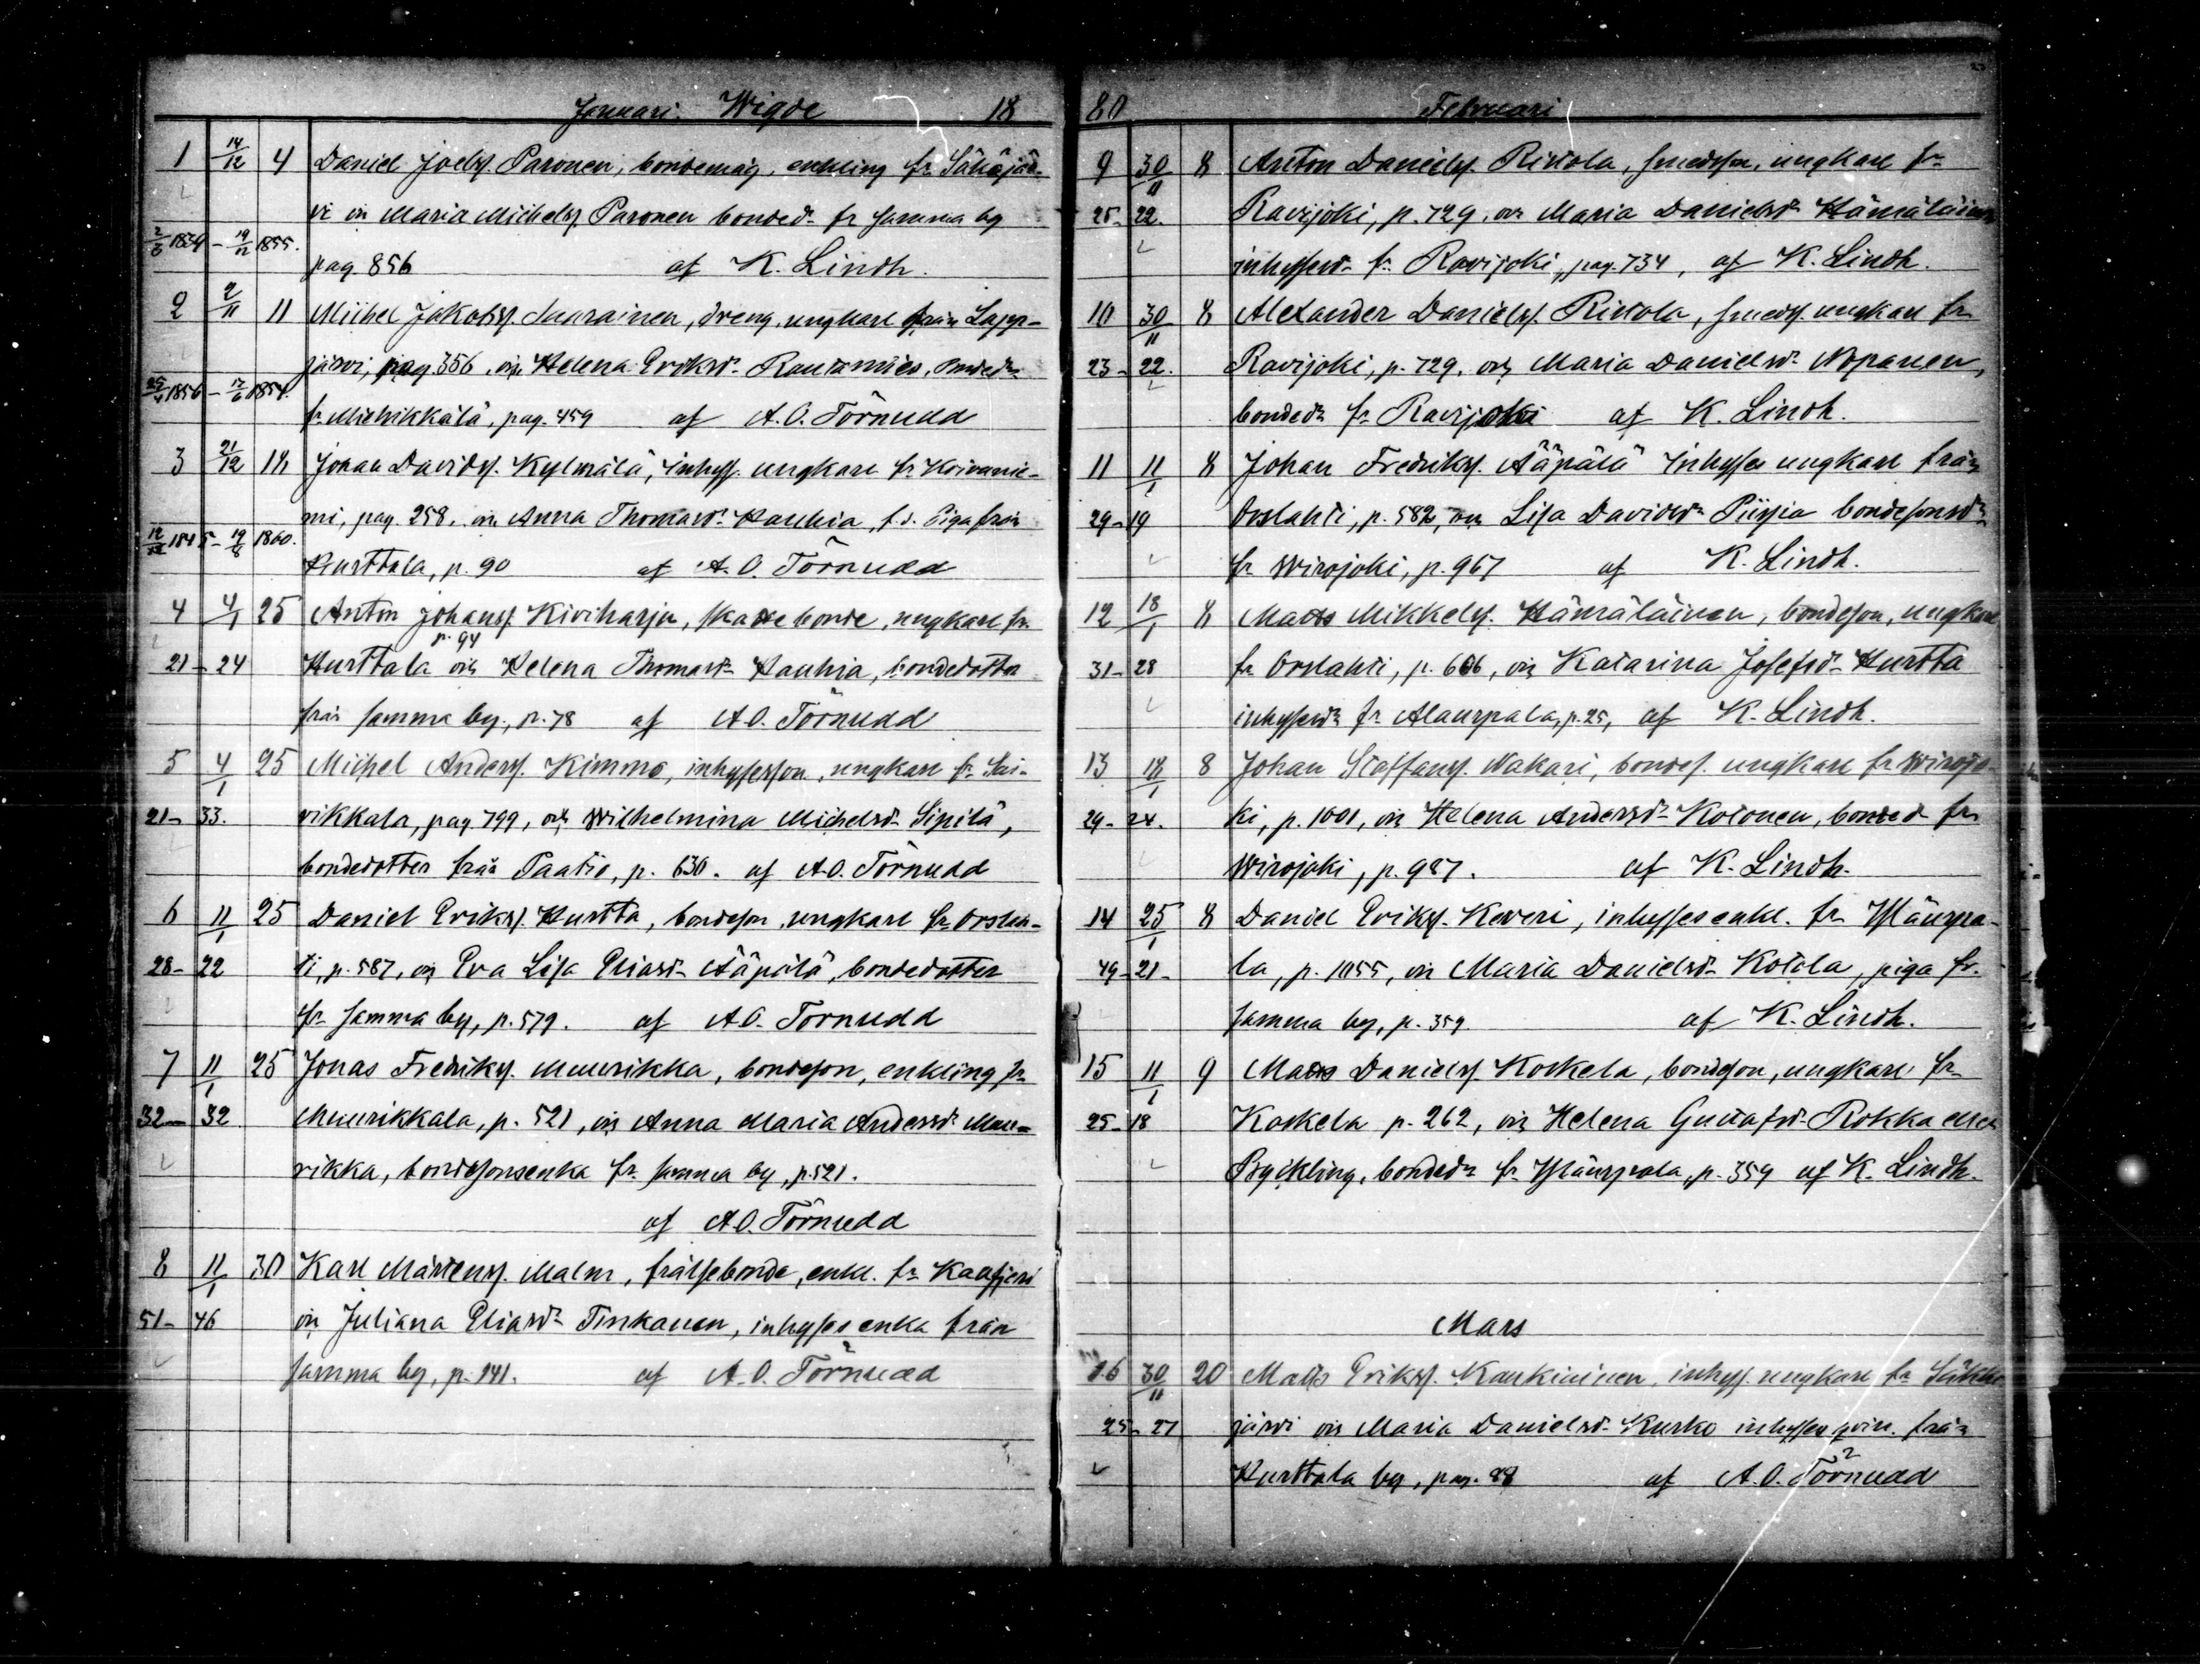 Januari. Wigde 18
1 14/12 4 Daniel Joelss. Paronen, bondemåg, enkling fr. Säkäjär-
vi o. Maria Michelsd. Paronen bonded. fr. samma by
2/6 1834 - 19/12 1855.
pag. 856 af K. Lindh.
2 2/11 11 Michel Jakobss. Suurainen, dreng, ungkarl från Lapp-
järvi, pag. 356, o. Helena Eriksd. Rautamies, bonded.
1856 - 17/6 1854.
fr. Miehikkälä, pag. 459 af A.O. Törnudd
3 21/12 18 Johan Davidss. Kylmälä, inhyss. ungkarl fr. Koivunie-
mi, pag. 258. o. Anna Thomasd. Hauhia, f.d. Piga från
1845 - 19/8 1860.
Hurttala, p. 90 af A.O. Törnudd
4 4/1 25 Anton Johanss. Kiviharju, skattebonde, ungkarl fr.
p. 94
21 - 24 Hurttala o. Helena Thomasd. Hauhia, bondedotter
från samma by, p. 78 af A.O. Törnudd
5 4/1 25 Michel Anderss. Kimmo, inhysesson, ungkarl fr. Sai-
21 - 33. vikkala, pag. 799, o. Wilhelmina Michelsd. Sipilä,
bondedotter från Paatio, p. 630. af A.O. Törnudd
6 11/1 25 Daniel Erikss. Hurtta, bondeson, ungkarl fr. Orslah-
28 - 22 ti, p. 587, o. Eva Lisa Eliasd. Ääpälä, bondedotter
fr. samma by, p. 579. af A.O. Törnudd
7 11/1 25 Jonas Fredrikss. Muurikka, bondeson, enkling fr.
32 - 32 Muurikkala, p. 521, o. Anna Maria Andersd. Muu-
rikka, bondesonsenka fr. samma by, p. 521.
af A.O. Törnudd
8 11/1 30 Karl Mårtenss. Malm, frälsebonde, enkl. fr. Kaafjeri
51 - 46 o. Juliana Eliasd. Tinkanen, inhyses enka från
samma by, p. 141. af A.O. Törnudd
80 Februari
9 30/11 8 Anton Danielss. Ristola, smedsson, ungkarl fr.
25 - 22. Ravijoki, p. 729, o. Maria Danielsd. Hämäläinen
inhysesd. fr. Ravijoki, pag. 734, af K. Lindh.
10 30/11 8 Alexander Danielss. Ristola, smeds. ungkarl fr.
23 - 22. Ravijoki, p. 729, o. Maria Danielsd. Nopanen,
bonded. fr. Ravijoki af K. Lindh.
11 11/1 8 Johan Fredrikss. Ääpälä inhyses ungkarl från
29 - 19 Orslahti, p. 582, o. Lisa Davidsd. Piispia bondesonsd.
fr. Wirojoki, p. 967 af K. Lindh.
12 18/1 8 Matts Mikkelss. Hämäläinen, bondeson, ungkarl
31 - 28 fr. Orslahti, p. 606, o. Katarina Josefsd. Hurtta
inhysesd. fr. Alaurpala, p. 25, af K. Lindh.
13 18/1 8 Johan Staffanss. Nakari, bondes. ungkarl fr. Wirojo-
29 - 24. ki, p. 1001, o. Helena Andersd. Kotonen, bonded. fr.
Wirojoki, p. 987. af K. Lindh.
14 25/1 8 Daniel Erikss. Keveri, inhyses enkl. fr. Yläurpa-
49 - 21 - la, p. 1055, o. Maria Danielsd. Kotola, piga fr.
samma by, p. 359 af K. Lindh.
15 11/1 9 Matts Danielss. Koskela, bondeson, ungkarl fr.
25 - 18 Koskela p. 262, o. Helena Gustafsd. Rokka eller
Byckling, bonded. fr. Yläurpala, p. 359 af K. Lindh.
Mars
16 30/11 20 Matts Erikss. Kaukiainen, inhyss. ungkarl fr. Säkkä
25 - 27 järvi o. Maria Danielsd. Kurko inhyses qvin. från
Hurttala by, pag. 88 af A.O. Törnudd